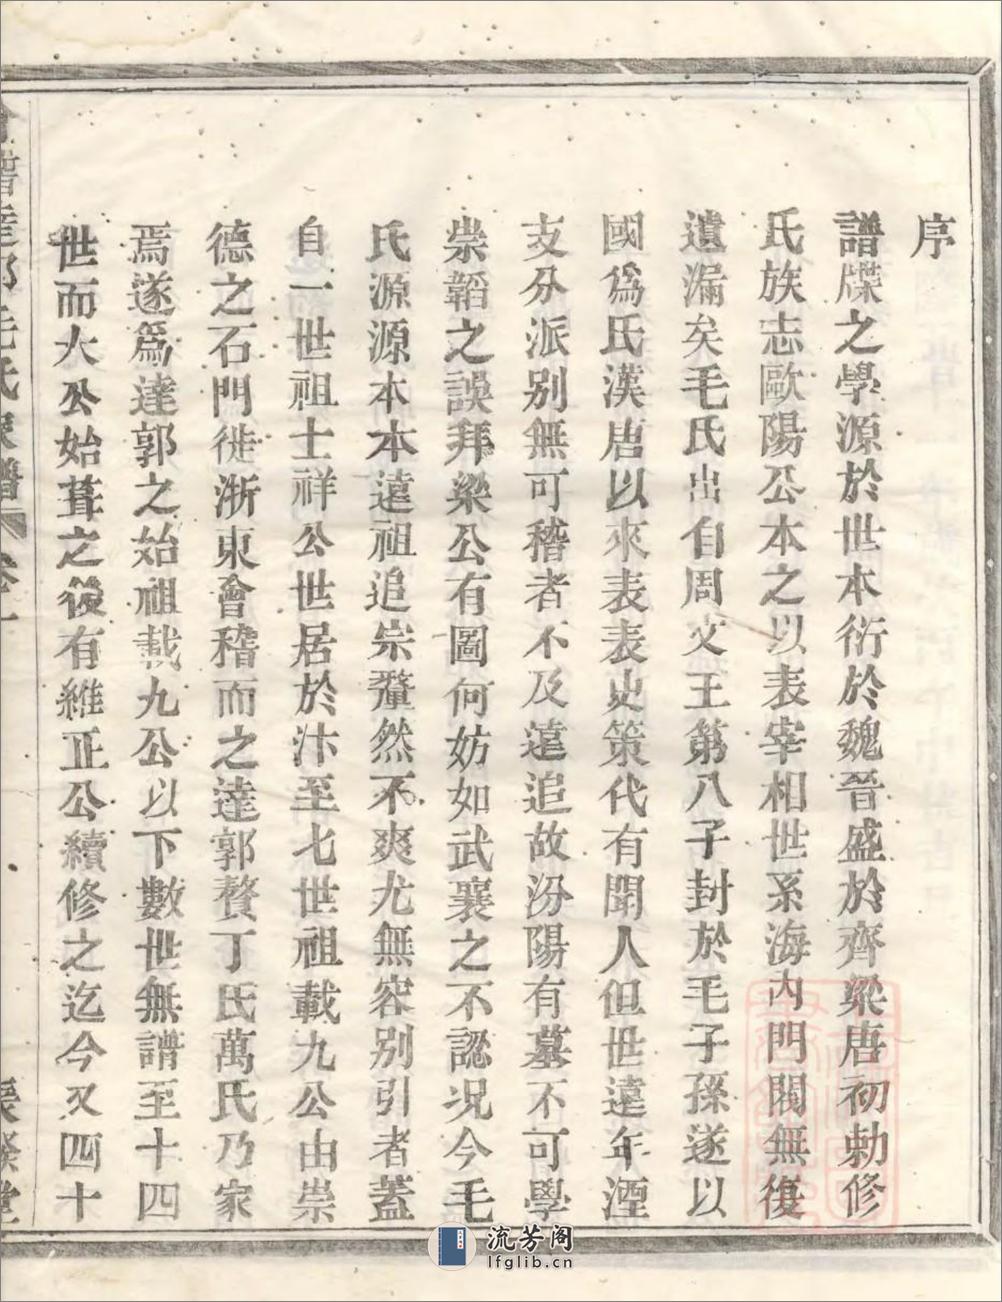 序
譜牒之學源於世本衍於魏晉盛於齊梁唐初勅修
氏族志歐陽公本之以表宰相世系海內門閥無復
遺漏矣毛氏出自周文王第八子封於毛子孫遂以
國爲氏漢唐以來表表史策代有聞人但世遠年湮
支分派別無可稽者不及遠追故汾陽有墓不可學
崇韜之誤拜梁公有圖何妨如武襄之不認况今毛
氏源源本本遠祖追宗釐然不爽尤無容別引者蓋
自一世祖士祥公世居於汴至七世祖載九公由崇
德之石門徙浙東會稽而之逹郭贅丁氏萬氏乃家
焉遂爲逹郭之始祖載九公以下數世無譜至十四
世而大公始葺之後有維正公續修之迄今又四十
毛氏宗譜 卷一
堂
流芳阁
lfglib.cn